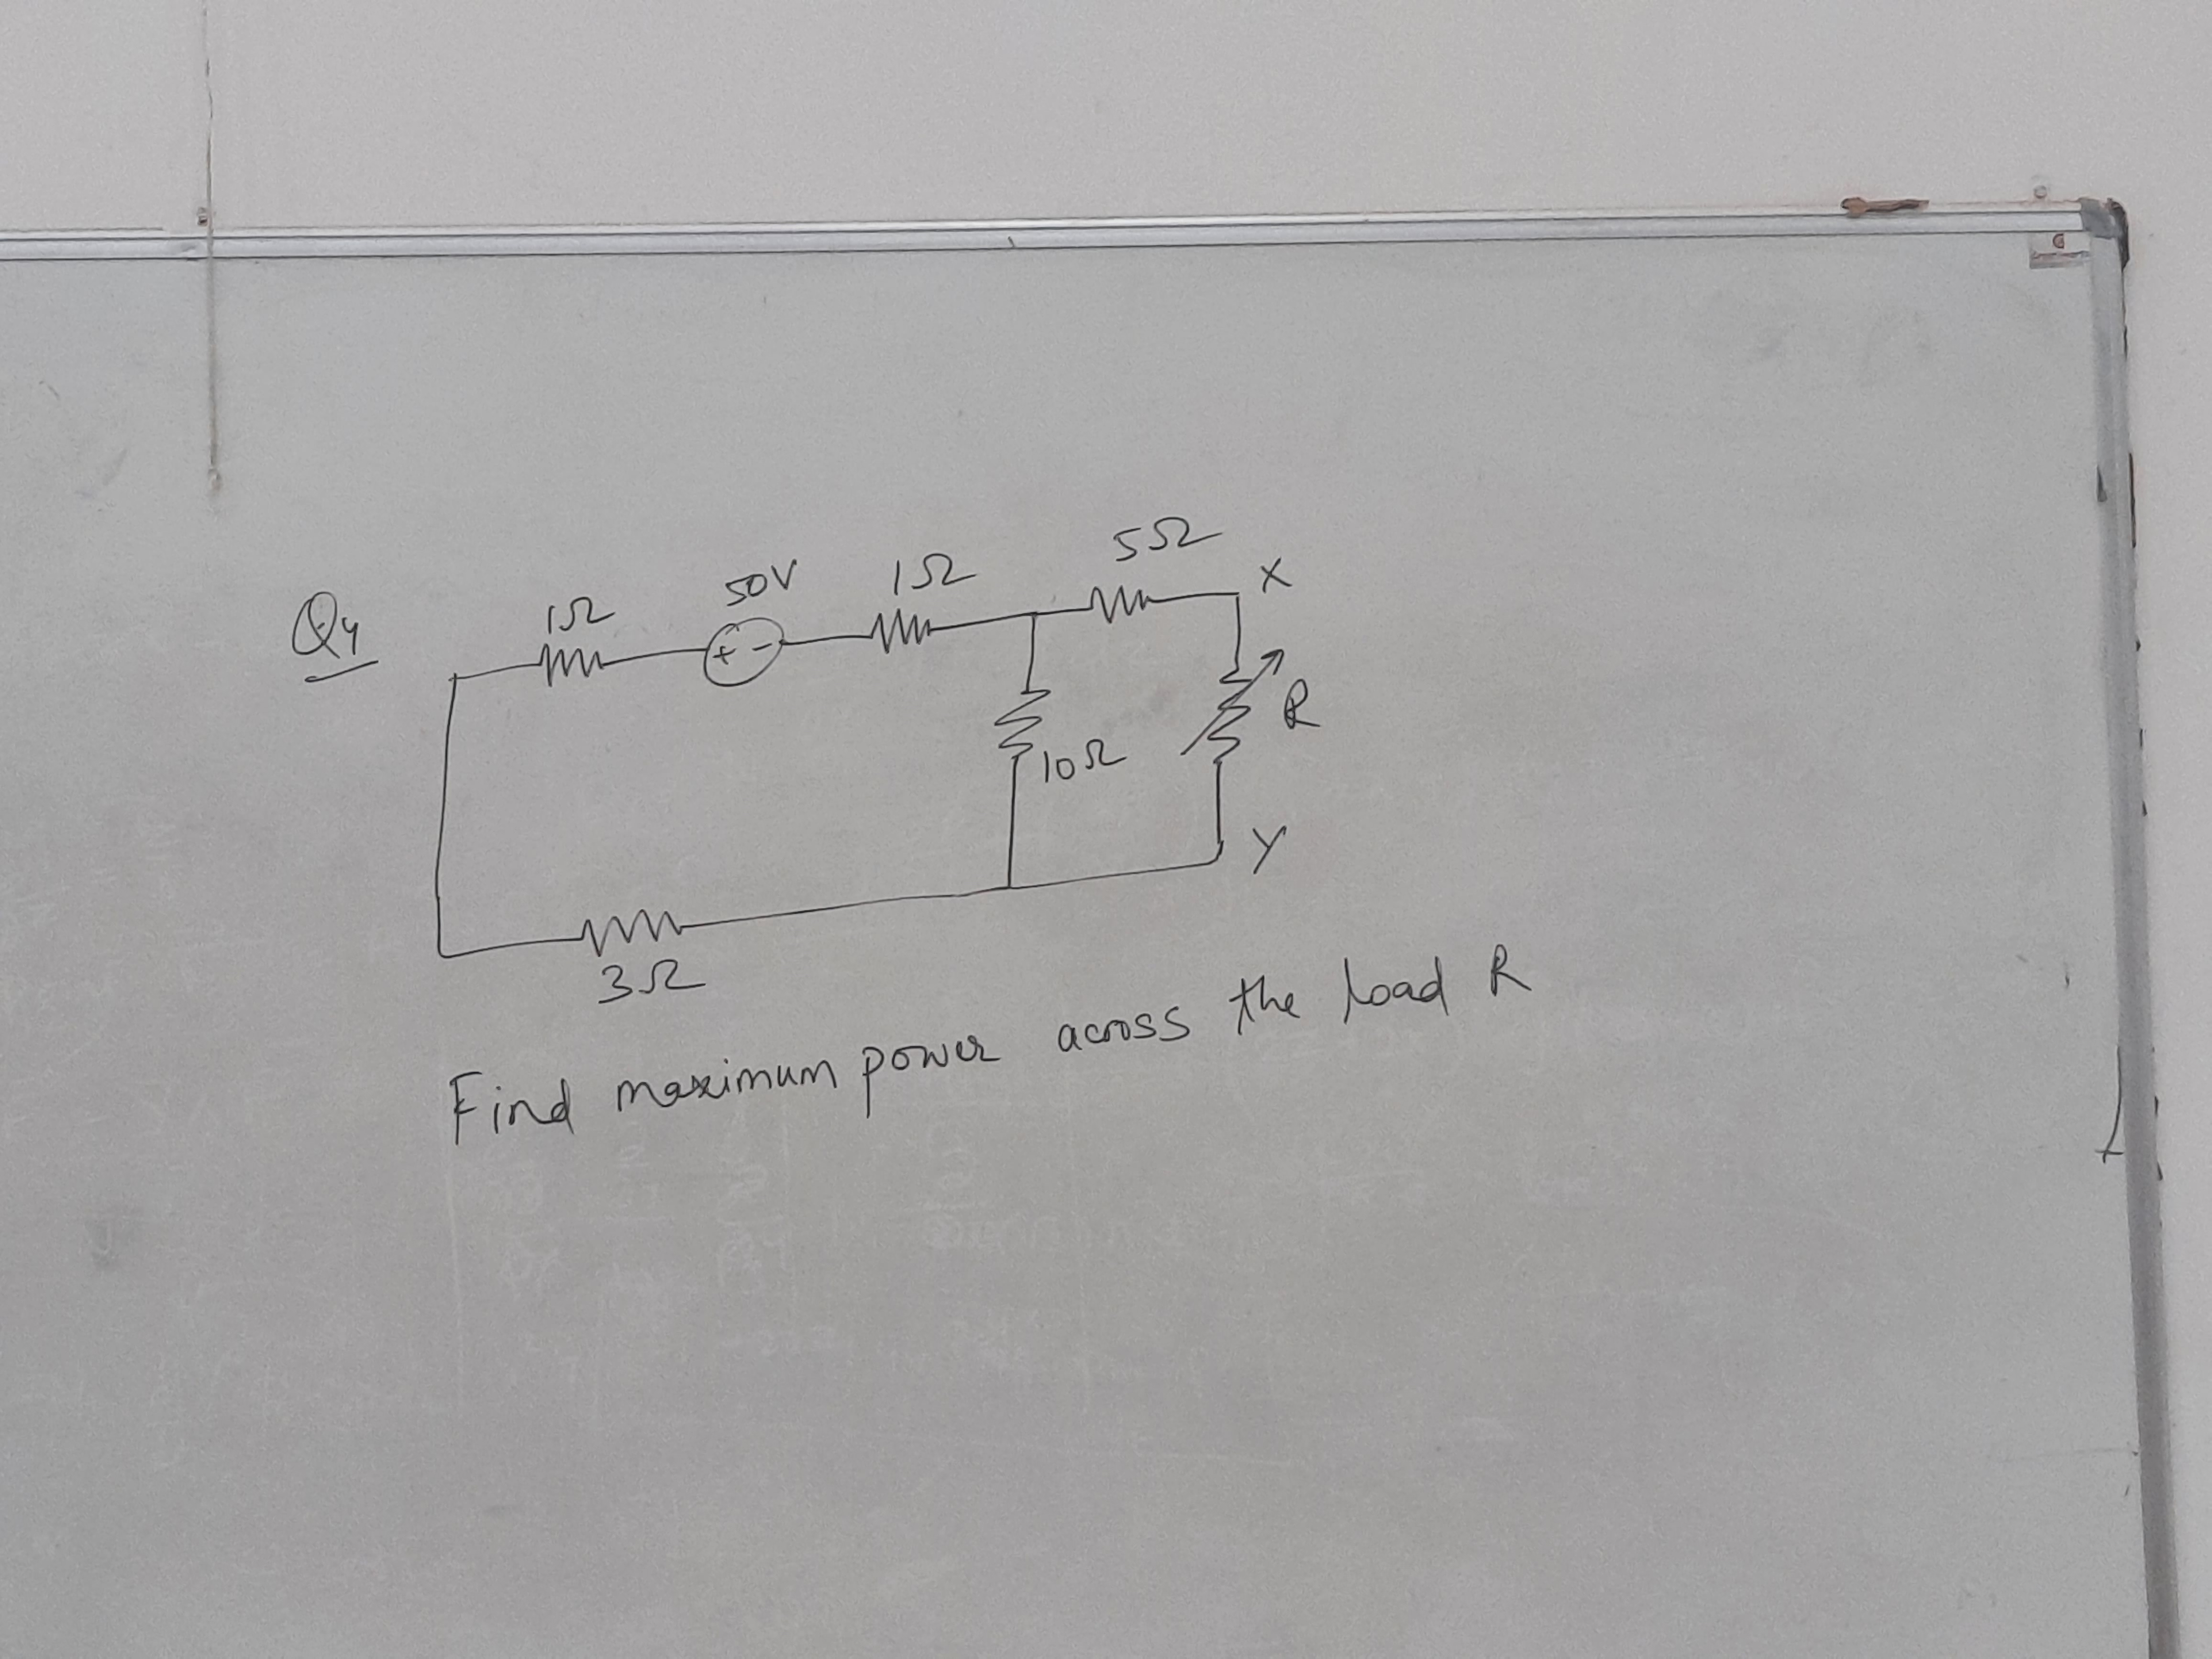 Q4
1Ω 50V 1Ω 5Ω X
+ -
R
10Ω
Y
3Ω
Find maximum power across the load R